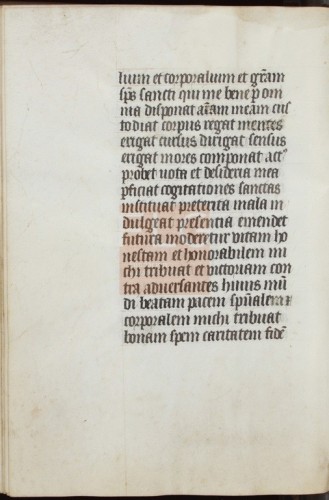 lium et corporalium et grãm
sp̃s sancti qui me bene p om
nia disponat aĩam meam cus
todiat corpus regat mentes
erigat cursus dirigat sensus
erigat mores componat act⁹
probet uota et desideria mea
pficiat cogitationes sanctas
instituat preterita mala in
dulgeat presentia emendet
futura moderetur vitam ho
nestam et honorabilem mi
chi tribuat et victoriam con
tra adversantes huius mũ
di beatam pacem spũalem ⁊
corporalem michi tribuat
bonam spem caritatem fidẽ